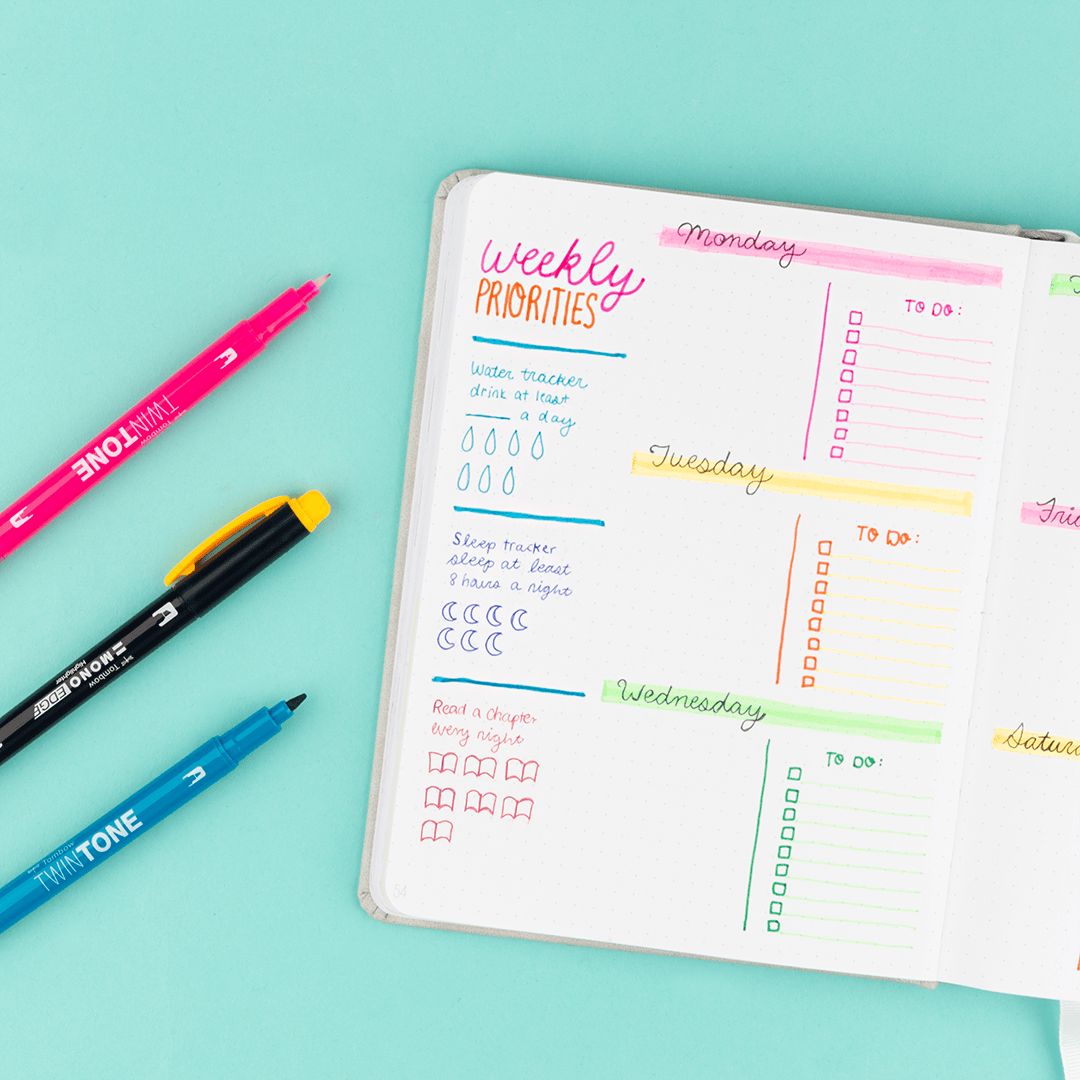 weekly
PRIORITIES
Water tracker
drink at least
____ a day
Sleep tracker
sleep at least
8 hours a night
Read a chapter
every night
54
Monday
TO DO:
Tuesday
TO DO:
Wednesday
TO DO:
Tombow
TWINTONE
Tombow
MONO EDGE
Highlighter
Tombow
TWINTONE